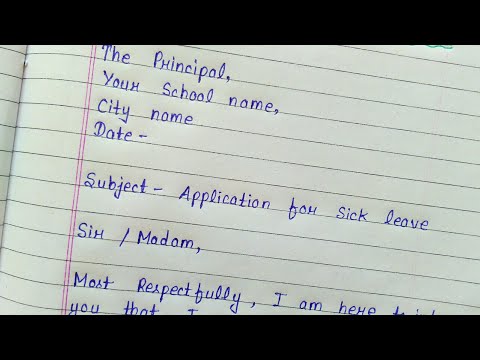 The Principal,
Your School name,
City name
Date -
Subject - Application for Sick leave
Sir / Madam,
Most Respectfully, I am here
you that I